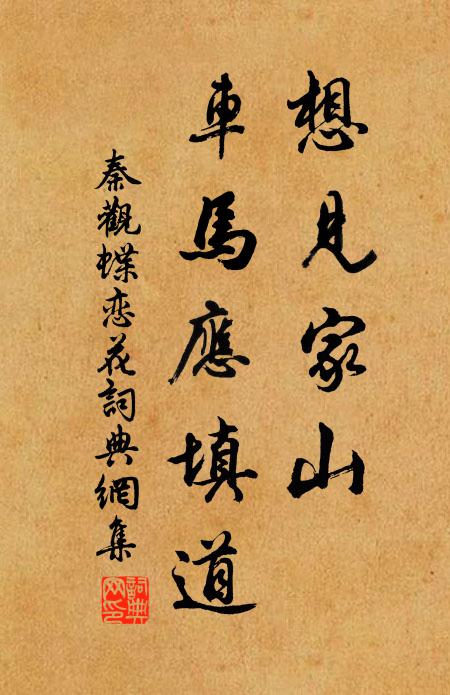 想見家山
車馬應填道
秦觀蝶恋花詞典網集
詞典
网印